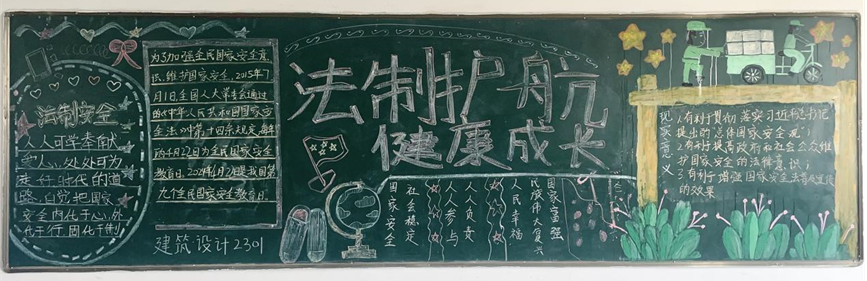 法制安全
人人可学奉献
安人心处处可为
走好时代的道
路，自觉把国家
安全内化于心，外
化于行，固化于制
为了加强全民国家安全意
识，维护国家安全，2015年7
月1日，全国人大常委会通过
的《中华人民共和国国家安
全法》中第十四条规定，每年
的4月15日为全民国家安全
教育日。2024年4月15日是我国第
九个全民国家安全教育日。
建筑设计2301
法制护航
健康成长
国家安全
社会稳定
人人参与
人人负责
人民幸福
民族伟大复兴
国家富强
现实意义
1.有利于贯彻落实习近平总书记
提出的总体国家安全观；
2.有利于提高政府和社会公众维
护国家安全的法律意识；
3.有利于增强国家安全法普及宣传
的效果